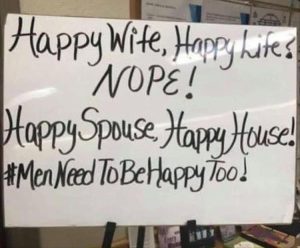 Happy Wife, Happy Life?
NOPE!
Happy Spouse, Happy House!
#Men Need To Be Happy Too!